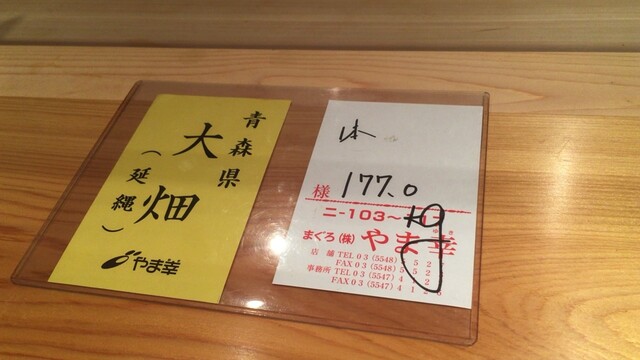 青森県
大畑
(延縄)
やま幸
様 177.0
ニ-103~
まぐろ(株)やま幸
店舗 TEL03(5548)
FAX03(5548)
事務所 TEL03(5547)
FAX03(5547)